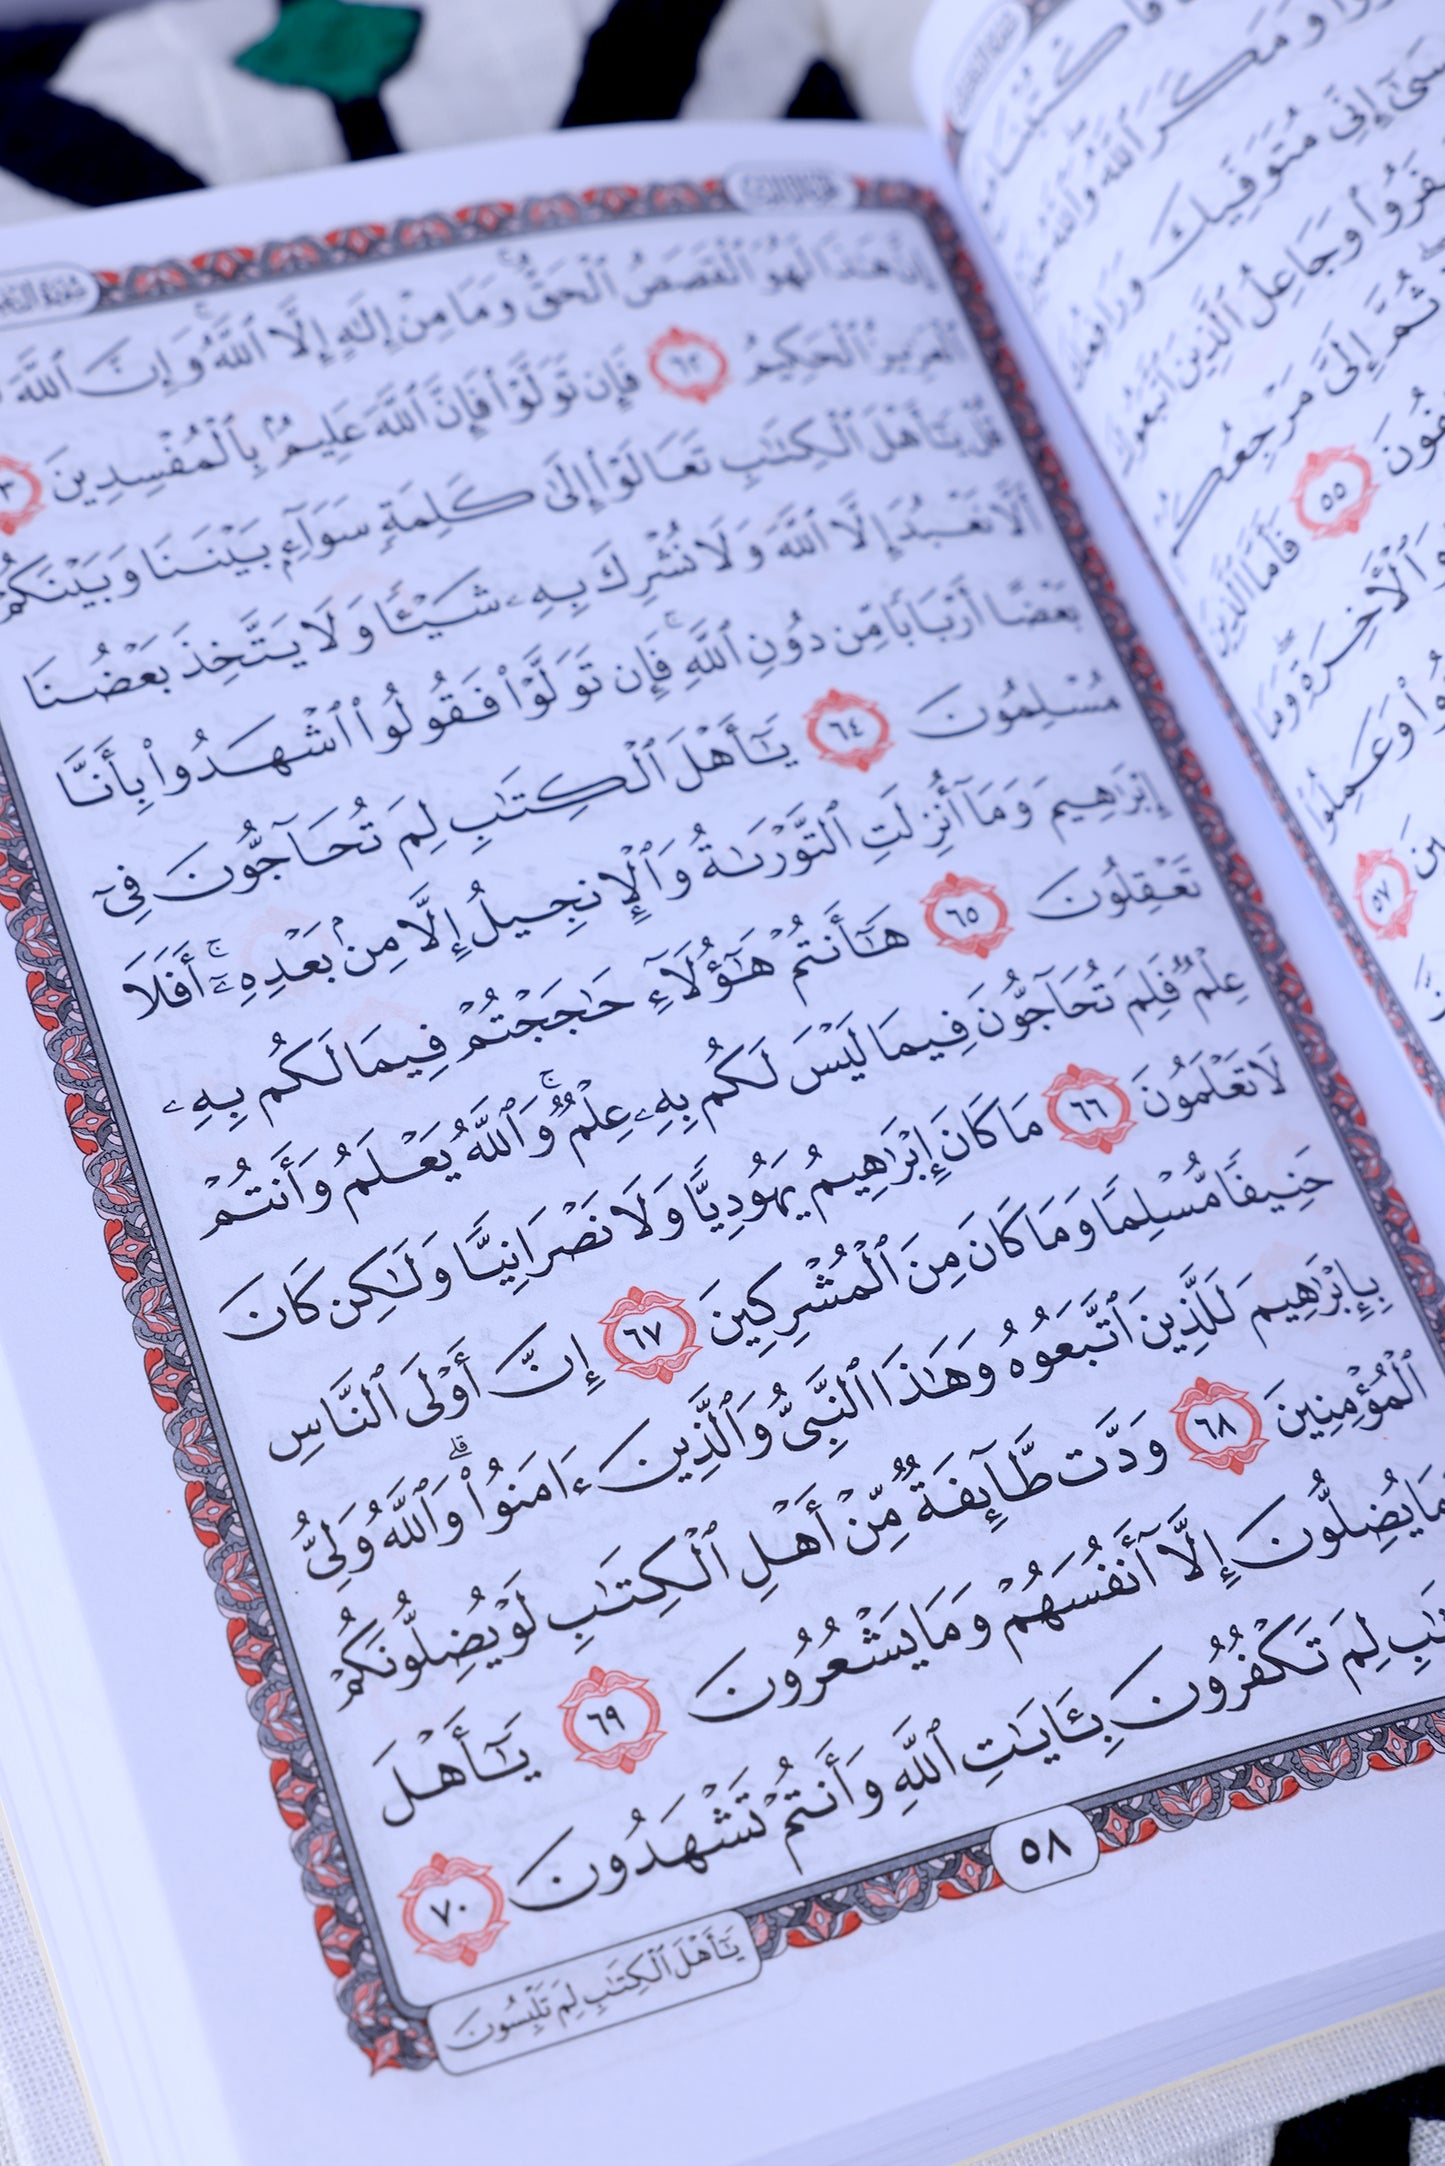 إِنَّ هَٰذَا لَهُوَ ٱلْقَصَصُ ٱلْحَقُّ وَمَا مِنْ إِلَٰهٍ إِلَّا ٱللَّهُ وَإِنَّ ٱللَّهَ
ٱلْعَزِيزُ ٱلْحَكِيمُ ٦٢ فَإِن تَوَلَّوْا۟ فَإِنَّ ٱللَّهَ عَلِيمٌۢ بِٱلْمُفْسِدِينَ
قُلْ يَٰٓأَهْلَ ٱلْكِتَٰبِ تَعَالَوْا۟ إِلَىٰ كَلِمَةٍ سَوَآءٍۭ بَيْنَنَا وَبَيْنَكُمْ
أَلَّا نَعْبُدَ إِلَّا ٱللَّهَ وَلَا نُشْرِكَ بِهِۦ شَيْـًٔا وَلَا يَتَّخِذَ بَعْضُنَا
بَعْضًا أَرْبَابًا مِّن دُونِ ٱللَّهِۚ فَإِن تَوَلَّوْا۟ فَقُولُوا۟ ٱشْهَدُوا۟ بِأَنَّا
مُسْلِمُونَ ٦٤ يَٰٓأَهْلَ ٱلْكِتَٰبِ لِمَ تُحَآجُّونَ فِىٓ
إِبْرَٰهِيمَ وَمَآ أُنزِلَتِ ٱلتَّوْرَىٰةُ وَٱلْإِنجِيلُ إِلَّا مِنۢ بَعْدِهِۦٓۚ أَفَلَا
تَعْقِلُونَ ٦٥ هَٰٓأَنتُمْ هَٰٓؤُلَآءِ حَٰجَجْتُمْ فِيمَا لَكُم بِهِۦ
عِلْمٌ فَلِمَ تُحَآجُّونَ فِيمَا لَيْسَ لَكُم بِهِۦ عِلْمٌۚ وَٱللَّهُ يَعْلَمُ وَأَنتُمْ
لَا تَعْلَمُونَ ٦٦ مَا كَانَ إِبْرَٰهِيمُ يَهُودِيًّا وَلَا نَصْرَانِيًّا وَلَٰكِن كَانَ
حَنِيفًا مُّسْلِمًا وَمَا كَانَ مِنَ ٱلْمُشْرِكِينَ ٦٧ إِنَّ أَوْلَى ٱلنَّاسِ
بِإِبْرَٰهِيمَ لَلَّذِينَ ٱتَّبَعُوهُ وَهَٰذَا ٱلنَّبِىُّ وَٱلَّذِينَ ءَامَنُوا۟ۗ وَٱللَّهُ وَلِىُّ
ٱلْمُؤْمِنِينَ ٦٨ وَدَّت طَّآئِفَةٌ مِّنْ أَهْلِ ٱلْكِتَٰبِ لَوْ يُضِلُّونَكُمْ
يُضِلُّونَ إِلَّآ أَنفُسَهُمْ وَمَا يَشْعُرُونَ ٦٩ يَٰٓأَهْلَ
لِمَ تَكْفُرُونَ بِـَٔايَٰتِ ٱللَّهِ وَأَنتُمْ تَشْهَدُونَ ٧٠
٥٨
يَٰٓأَهْلَ ٱلْكِتَٰبِ لِمَ تَلْبِسُونَ
وَمَكَرَ ٱللَّهُ وَٱللَّهُ
إِنِّى مُتَوَفِّيكَ وَرَافِعُكَ
وَجَاعِلُ ٱلَّذِينَ ٱتَّبَعُوكَ
ثُمَّ إِلَىَّ مَرْجِعُكُمْ
٥٥ فَأَمَّا ٱلَّذِينَ
وَٱلْـَٔاخِرَةِ وَمَا
وَعَمِلُوا۟
٥٧